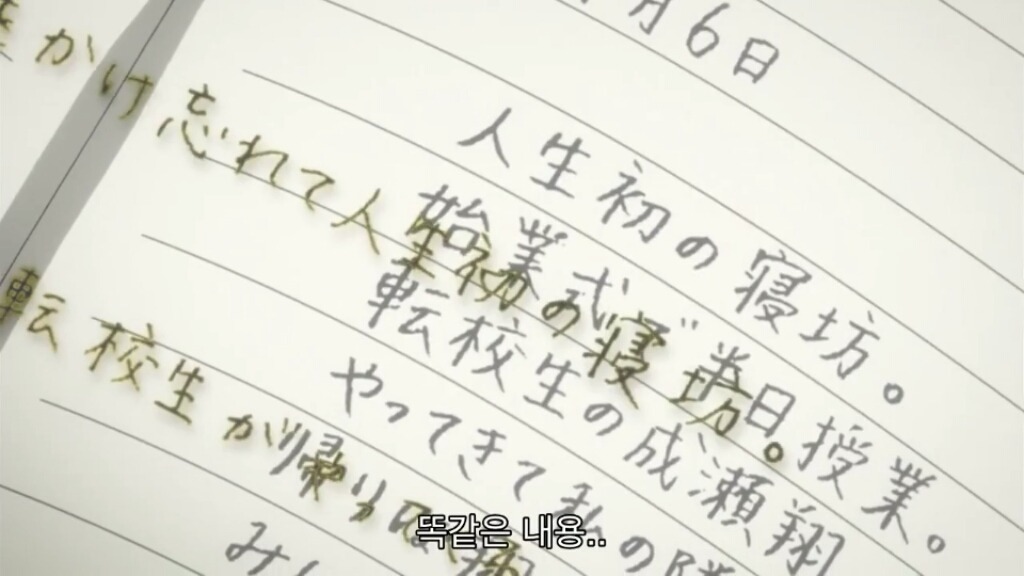 月6日
人生初の寝坊。
始業式 日授業。
転校生の成瀬翔
やってきて私の隣
み
かけ忘れて人生初の寝坊。
転校生が帰り
똑같은 내용..